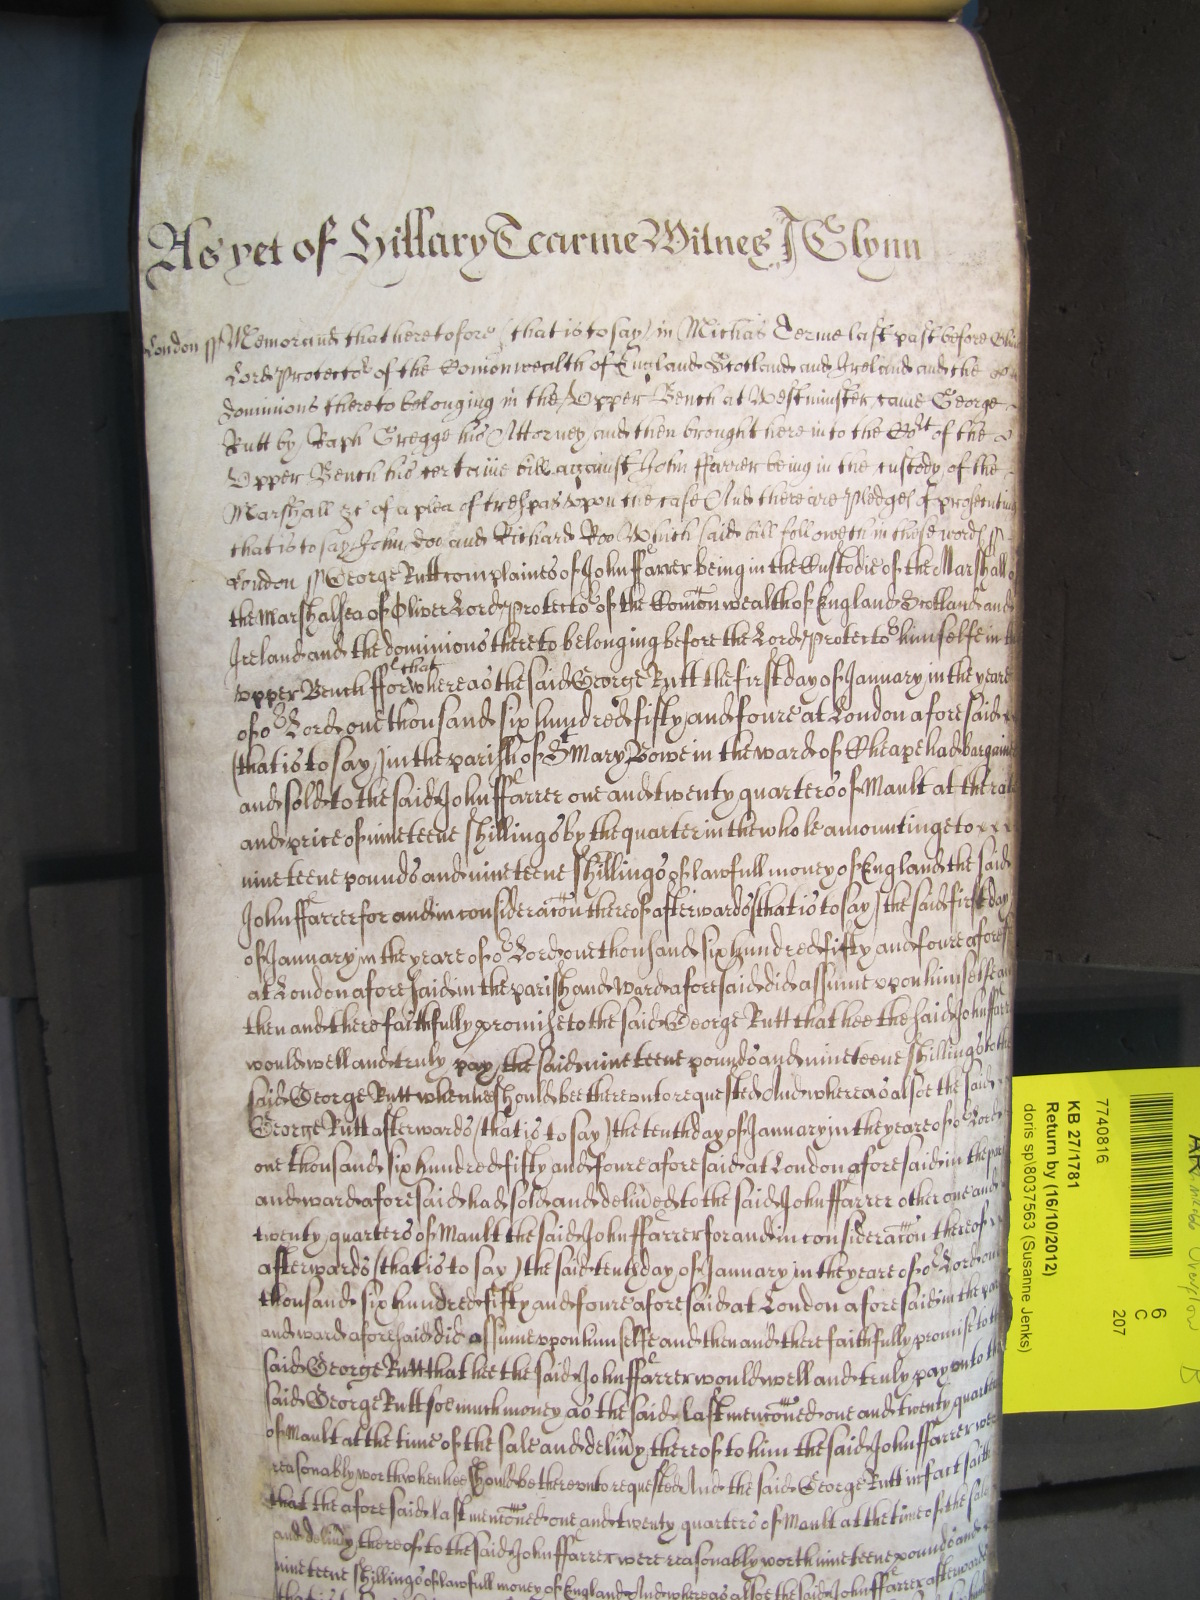 As yet of Hillary Tearme Witnes J Glynn
London ss Memorand that heretofore (that is to say) in Michas Terme last past before
Lord Protector of the Comonwealth of England Scotland and Ireland and the
dominions thereto belonging in the Upper Bench at Westminster came George
Rutt by Raph Gregge his Attorney and then brought here into the Cort of the
Upper Bench his certaine bill against John ffarrer being in the custody of the
Marshall &c of a plea of trespas upon the case And there are pledges of prosecuting
that is to say John doo and Richard Roo Which said bill followeth in these words ss
London ss George Rutt complaines of John ffarrer being in the Custodie of the Marshall of
the Marshalsea of Oliver Lord Protector of the Comon wealth of England Scotland and
Ireland and the dominions thereto belonging before the Lord Protector himselfe in the
upper Bench ffor that whereas the said George Rutt the first day of January in the yeare
of or Lord one thousand six hundred fifty and foure at London aforesaid
(that is to say) in the parish of St Mary Bowe in the ward of Cheape had bargained
and sold to the said John ffarrer one and twenty quarters of Mault at the rate
and price of nineteene shillings by the quarter in the whole amountinge to
nineteene pounds and nineteene shillings of lawfull money of England the said
John ffarrer for and in consideracon thereof afterwards (that is to say) the said first day
of January in the yeare of or Lord one thousand six hundred fifty and foure afores
at London aforesaid in the parish and Ward aforesaid did assume upon himselfe and
then and there faithfully promise to the said George Rutt that hee the said John ffarrer
would well and truly pay the said nineteene pounds and nineteene shillings to the
said George Rutt when hee should bee thereunto requested And whereas alsoe the said
George Rutt afterwards (that is to say) the tenth day of January in the yeare of or Lord
one thousand six hundred fifty and foure aforesaid at London aforesaid in the parish
and ward aforesaid had sold and delivered to the said John ffarrer other one and
twenty quarters of Mault the said John ffarrer for and in consideracon thereof
afterwards (that is to say) the said tenth day of January in the yeare of or Lord one
thousand six hundred fifty and foure aforesaid at London aforesaid in the parish
and ward aforesaid did assume upon himselfe and then and there faithfully promise to the
said George Rutt that hee the said John ffarrer would well and truly pay unto the
said George Rutt soe much money as the said last menconed one and twenty quarters
of Mault at the time of the sale and delivy thereof to him the said John ffarrer were
reasonably worth when hee should be thereunto requested And the said George Rutt in fact saith
that the aforesaid last menconed one and twenty quarters of Mault at the time of the sale
and delivy thereof to the said John ffarrer were reasonably worth nineteene pounds and
nineteene shillings of lawfull money of England And whereas alsoe the said John ffarrer afterwards
7740816
KB 27/1781
Return by (16/10/2012)
doris sp\8037563 (Susanne Jenks)
6
C
207